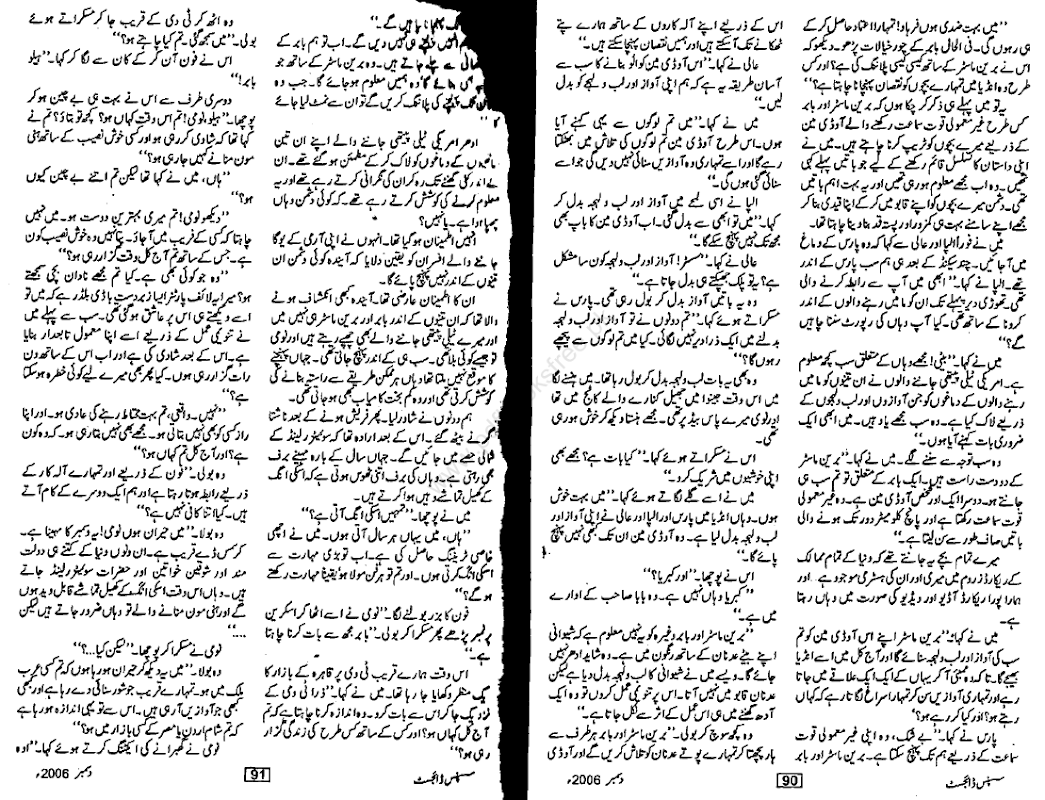 ”میں بہت ضدی ہوں فرہاد! تمہارا اعتماد حاصل کر کے
ہی رہوں گی۔ فی الحال بابر کے چور خیالات پڑھو۔ دیکھو کہ
اس نے برین ماسٹر کے ساتھ کیسی کیسی پلاننگ کی ہے؟ اور کس
طرح وہ انڈیا میں تمہارے بچوں کو نقصان پہنچانا چاہتا ہے؟“
یہ تو میں پہلے ہی ذکر کر چکا ہوں کہ برین ماسٹر اور بابر
کس طرح غیر معمولی قوت سماعت رکھنے والے آوڈی مین
کے ذریعے میرے بچوں کو ٹریپ کرنا چاہتے ہیں۔ میں نے
اپنی داستان کا تسلسل قائم رکھنے کے لیے جو باتیں پہلے کہی
تھیں۔ وہ اب مجھے معلوم ہو رہی تھیں اور یہ بہت اہم باتیں
تھی۔ دشمن میرے بچوں کو اپنے قابو میں کر کے اپنا قیدی بنا کر
مجھے اپنے سامنے بہت ہی کمزور اور پست قد بنا دینا چاہتا تھا۔
میں نے فوراً الپا اور عالی سے کہا کہ وہ پارس کے دماغ
میں آجائیں۔ چند سیکنڈ کے بعد ہی ہم سب پارس کے اندر
تھے۔ الپا نے کہا۔ ”ابھی میں آپ سے رابطہ کرنے والی
تھی۔ تھوڑی دیر پہلے تک ان کو ما میں رہنے والوں کے اندر
کرونا کے ساتھ تھی۔ کیا آپ وہاں کی رپورٹ سننا چاہیں
گے؟“
میں نے کہا۔ ”بیٹی! مجھے وہاں کے متعلق سب کچھ معلوم
ہے۔ امریکی ٹیلی پیتھی جاننے والوں نے ان تینوں کو ما میں
رہنے والوں کے دماغوں کو جن آوازوں اور لب و لہجوں کے
ذریعے لاک کیا ہے۔ وہ سب مجھے یاد ہیں۔ میں ابھی ایک
ضروری بات کہنے آیا ہوں۔“
وہ سب توجہ سے سننے لگے۔ میں نے کہا۔ ”برین ماسٹر
کے دو دست راست ہیں۔ ایک بابر کے متعلق تو تم سب ہی
جانتے ہو۔ دوسرا ایک اور شخص آوڈی مین ہے۔ وہ غیر معمولی
قوت سماعت رکھتا ہے اور پانچ کلو میٹر دور تک ہونے والی
باتیں صاف طور سے سن لیتا ہے۔“
میرے تمام بچے یہ جانتے تھے کہ دنیا کے تمام ممالک
کے ریکارڈز روم میں میری اور ان کی ہسٹری موجود ہے اور
ہمارا پورا ریکارڈ آڈیو اور ویڈیو کی صورت میں وہاں رہتا
ہے۔
میں نے کہا: ”برین ماسٹر اپنے اس آوڈی مین کو تم
سب کی آواز اور لب و لہجہ سنائے گا اور آج کل میں اسے انڈیا
بھیجے گا۔ تاکہ وہ ممبئی آ کر یہاں کے ایک ایک علاقے میں جاتا
رہے اور تمہاری آوازیں سن کر تمہارا سراغ لگا تار ہے کہ کہاں
رہتے ہو؟ اور کیا کر رہے ہو؟
پارس نے کہا۔ ”بے شک، وہ اپنی غیر معمولی قوت
سماعت کے ذریعے ہم تک پہنچ سکتا ہے۔ برین ماسٹر اور بابر
سسپنس ڈائجسٹ
90
دسمبر 2006ء
اس کے ذریعے اپنے آلہ کاروں کے ساتھ ہمارے پتے
ٹھکانے تک آسکتے ہیں اور ہمیں نقصان پہنچا سکتے ہیں۔“
عالی نے کہا۔ ”اس آوڈی مین کو الو بنانے کا سب سے
آسان طریقہ یہ ہے کہ ہم اپنی آواز اور لب و لہجے کو بدل
لیں۔“
میں نے کہا۔ ”میں تم لوگوں سے یہی کہنے آیا
ہوں۔ اس طرح آوڈی مین تم لوگوں کی تلاش میں بھٹکتا
رہے گا اور اسے تمہاری وہ آوازیں سنائی نہیں دیں گی جو اسے
سنائی گئی ہوں گی۔“
الپا نے اسی لمحے میں آواز اور لب و لہجہ بدل کر
کہا۔ ”میں تو ابھی سے بدل گئی۔ اب آوڈی مین کا باپ بھی
مجھ تک نہیں پہنچ سکے گا۔“
عالی نے کہا۔ ”مسٹر! آواز اور لب و لہجہ کون سا مشکل
ہے؟ یہ تو پلک جھپکتے ہی بدل جاتا ہے۔“
وہ یہ باتیں آواز بدل کر بول رہی تھی۔ پارس نے
مسکراتے ہوئے کہا۔ ”تم دونوں نے تو آواز اور لب و لہجہ
بدلنے میں ایک ذرا دیر نہیں لگائی۔ کیا میں تم لوگوں سے پیچھے
رہوں گا؟“
وہ بھی یہ بات لب و لہجہ بدل کر بول رہا تھا۔ میں ہنسنے لگا
میں اس وقت جنیوا میں جھیل کنارے والے کاٹج میں تھا
اور نومی میرے پاس بیڈ پر تھی۔ مجھے ہنستا دیکھ کر خوش ہو رہی
تھی۔
اس نے مسکراتے ہوئے کہا۔ ”کیا بات ہے؟ مجھے بھی
اپنی خوشیوں میں شریک کرو۔“
میں نے اسے گلے لگاتے ہوئے کہا۔ ”میں بہت خوش
ہوں۔ وہاں انڈیا میں پارس اور الپا اور عالی نے اپنی آواز اور
لب و لہجہ بدل لیا ہے۔ وہ آوڈی مین ان تک کبھی نہیں پہنچ
پائے گا۔“
اس نے پوچھا۔ ”اور کبریا؟“
”کبریا وہاں نہیں ہے۔ وہ بابا صاحب کے ادارے
میں ہے۔“
”برین ماسٹر اور بابر وغیرہ کو یہ نہیں معلوم ہے کہ شیوانی
اپنے بیٹے عدنان کے ساتھ رنگون میں ہے۔ وہ شاید ادھر نہیں
جائے گا۔ ویسے میں نے شیوانی کا لب و لہجہ بدل دیا ہے لیکن
عدنان قابو میں نہیں آتا۔ اس پر تنویمی عمل کروں تو وہ ایک
آدھ گھنٹے میں ہی اس عمل کے اثر سے نکل جاتا ہے۔“
وہ کچھ سوچ کر بولی۔ ”برین ماسٹر اور بابر ہر طرف سے
ہار پچھتا کر تمہارے پوتے عدنان کو تلاش کریں گے اور آوڈی
پہنچانا چاہیں گے۔“
انہیں دیں گے۔ اب تو ہم بابر کے
سے پہلے جانتے ہیں۔ وہ برین ماسٹر کے ساتھ جو
بنائے گا وہ ہمیں معلوم ہو جائے گا۔ جب وہ
تک پہنچنے کی پلاننگ کریں گے تو ان سے نمٹ لیا جائے
گا“
ادھر امریکی ٹیلی پیتھی جاننے والے اپنے ان تین
ساتھیوں کے دماغوں کو لاک کر کے مطمئن ہو گئے تھے۔ ان
کے اندر کئی گھنٹے تک رہ کر ان کی نگرانی کرتے رہے تھے اور یہ
معلوم کرنے کی کوشش کرتے رہے تھے۔ کہ کوئی دشمن وہاں
چھپا ہوا ہے۔ یا نہیں؟
انہیں اطمینان ہو گیا تھا۔ انہوں نے اپنی آرمی کے یوگا
جاننے والے افسران کو یقین دلایا کہ آیندہ کوئی دشمن ان
تینوں کے اندر نہیں پائے گا۔
ان کا اطمینان عارضی تھا۔ آیندہ کبھی انکشاف ہونے
والا تھا کہ ان تینوں کے اندر بابر اور برین ماسٹر ہی نہیں میں
اور میرے ٹیلی پیتھی جاننے والے بھی چھپے رہتے ہیں اور نومی
تو جیسے کوئی بلا تھی۔ سب ہی کے اندر پہنچ جاتی تھی۔ جہاں پہنچنے
کا موقع نہیں ملتا تھا وہاں ہر ممکن طریقے سے راستہ بنانے کی
کوشش کرتی تھی اور وہ کم بخت کامیاب بھی ہو جاتی تھی۔
ہم دونوں نے شاور لیا۔ پھر فریش ہونے کے بعد ناشتا
کرنے بیٹھ گئے۔ اس کے بعد ارادہ تھا کہ سوئیٹزر لینڈ کے
شمالی حصے میں جائیں گے۔ جہاں سال کے بارہ مہینے برف
بھی رہتی ہے۔ وہاں کی برف اتنی ٹھوس ہوتی ہے کہ اسکی انگ
کے کھیل تماشے وہیں ہوا کرتے ہیں۔
میں نے پوچھا۔ ”تمہیں اسکی انگ آتی ہے؟“
”ہاں، میں یہاں ہر سال آتی ہوں۔ میں نے اچھی
خاصی ٹریننگ حاصل کی ہے۔ اب تو بڑی مہارت سے
اسکی انگ کرتی ہوں۔ اور تم تو ہرفن مولا ہو یقیناً مہارت رکھتے
ہو گے؟“
فون کا بزر بولنے لگا۔ ”نومی نے اسے اٹھا کر اسکرین
پر نمبر پڑھے پھر مسکرا کر بولی۔ ”بابر مجھ سے بات کرنا چاہتا
ہے۔“
اس وقت ہمارے قریب ٹی وی پر قاہرہ کے بازار کا
ایک منظر دکھایا جا رہا تھا۔ میں نے کہا۔ ”ذرا ٹی وی کے
نزدیک جا کر اس سے بات کرو۔ وہ اندازہ کرنا چاہتا ہے کہ تم
آج کل کہاں ہو؟ اور کس کے ساتھ کس طرح کی زندگی گزار
رہی ہو؟“
سسپنس ڈائجسٹ
91
دسمبر 2006ء
وہ اٹھ کر ٹی وی کے قریب جا کر مسکراتے ہوئے
بولی۔ ”میں سمجھ گئی۔ تم کیا چاہتے ہو؟“
اس نے فون آن کر کے کان سے لگا کر کہا۔ ”ہیلو
بابر!“
دوسری طرف سے اس نے بہت ہی بے چین ہو کر
پوچھا۔ ”ہیلو نومی! تم اس وقت کہاں ہو؟ کچھ تو بتاؤ؟ تم نے
کہا تھا کہ شادی کر رہی ہو اور کسی خوش نصیب کے ساتھ ہنی
مون منانے کہیں جا رہی ہو؟“
”ہاں، میں نے کہا تھا لیکن تم اتنے بے چین کیوں
ہو؟“
”دیکھو نومی! تم میری بہترین دوست ہو۔ میں نہیں
چاہتا کہ کسی کے فریب میں آجاؤ۔ پتا نہیں وہ خوش نصیب کون
ہے۔ جس کے ساتھ تم آج کل وقت گزار رہی ہو؟“
”وہ جو کوئی بھی ہے۔ کیا تم مجھے نادان بچی سمجھتے
ہو؟ میرا یہ لائف پارٹنر ایسا زبردست باڈی بلڈر ہے کہ میں تو
اسے دیکھتے ہی اس پر عاشق ہو گئی تھی۔ سب سے پہلے میں
نے تنویمی عمل کے ذریعے اسے اپنا معمول تابعدار بنایا
ہے۔ اس کے بعد شادی کی ہے اور اب اس کے ساتھ دن
رات گزار رہی ہوں۔ کیا پھر بھی میرے لیے کوئی خطرہ ہو سکتا
ہے؟“
”نہیں۔ واقعی، تم بہت محتاط رہنے کی عادی ہو۔ اور اپنا
راز کسی کو بھی نہیں بتاتی ہو۔ مجھے بھی نہیں بتا رہی ہو۔ کہ وہ کون
ہے؟ اور آج کل تم کہاں ہو؟“
وہ بولی۔ ”فون کے ذریعے اور تمہارے آلہ کار کے
ذریعے رابطہ ہوتا رہتا ہے اور ہم ایک دوسرے کے کام آتے
ہیں۔ کیا اتنا کافی نہیں ہے؟“
وہ بولا۔ ”میں حیران ہوں نومی! یہ دسمبر کا مہینا ہے۔
کرسمس ڈے قریب ہے۔ ان دنوں دنیا کے کتنے ہی دولت
مند اور شوقین خواتین اور حضرات سوئیٹزر لینڈ جاتے
ہیں۔ وہاں اس وقت اسکی انگ کے کھیل تماشے قابل دید ہوں
گے اور ہنی مون منانے والے تو وہاں ضرور جاتے ہیں لیکن
....“
نومی نے مسکرا کر پوچھا۔ ”لیکن کیا....؟“
وہ بولا۔ ”میں یہ دیکھ کر حیران ہو رہا ہوں کہ تم کسی عرب
ملک میں ہو۔ تمہارے قریب جو شور سنائی دے رہا ہے اور بھی
کبھی جو آوازیں آرہی ہیں۔ اس سے تو یہی اندازہ ہو رہا ہے
کہ تم شام اردن یا مصر کے کسی بازار میں ہو؟“
نومی نے گھبرانے کی ایکٹنگ کرتے ہوئے کہا۔ ”اوہ